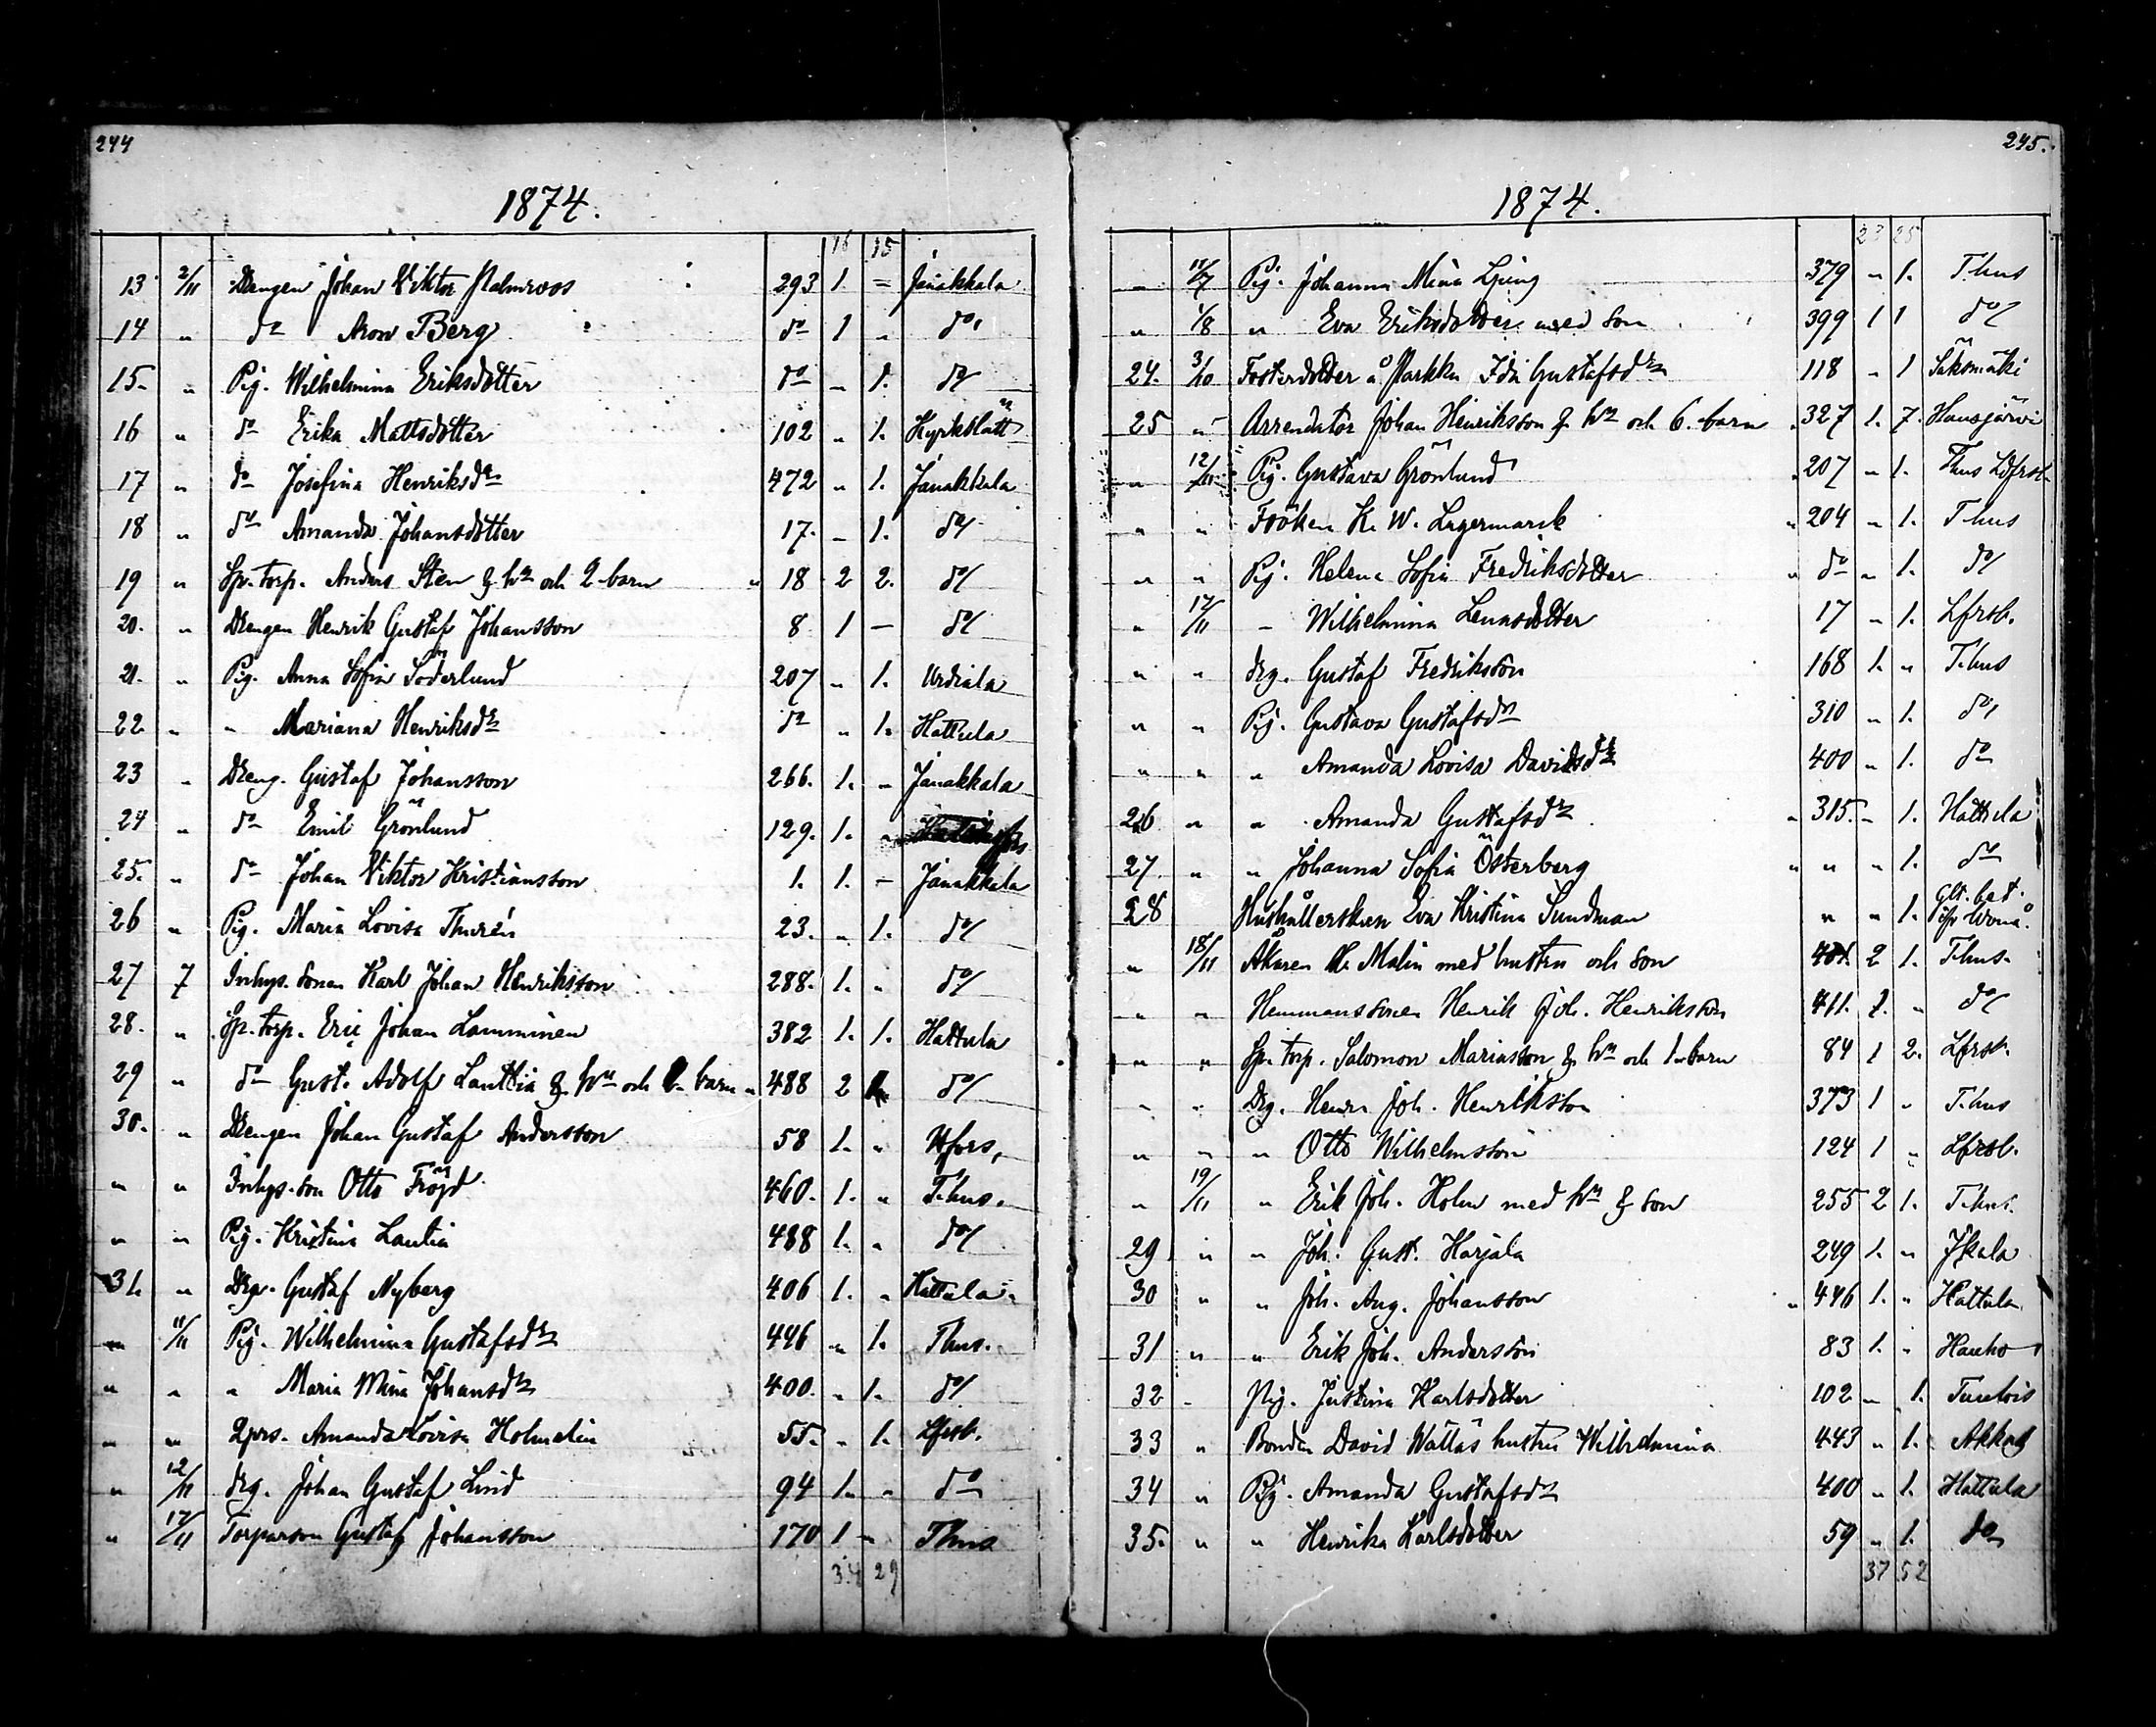 244
1874.
16 15
13 2/11 Drengen Johan Viktor Palmroos 293 1. = Janakkala
14 " do Aron Berg do 1 " do
15. " Pig. Wilhelmina Eriksdotter do " 1. do
16 " do Erika Mattsdotter 102 " 1. Kyrkslätt
17 " do Josefina Henriksdr 472 " 1. Janakkala
18 " do Amanda Johansdotter 17. – 1. do
19 " Sp. torp. Anders Sten & hu och 2 barn " 18 2 2. do
20. " Drengen Henrik Gustaf Johansson 8 1 – do
21. " Pig. Anna Sofia Söderlund 207 " 1. Urdiala
22 " " Mariana Henriksdr do " 1. Hattula
23 " Dreng. Gustaf Johansson 266. 1. " Janakkala
24 " do Emil Grönlund 129. 1. "
25. " do Johan Viktor Kristiansson 1. 1. – Janakkala
26 " Pig. Maria Lovisa Thurén 23. " 1. do
27 7 Inhys. sonen Karl Johan Henriksson 288. 1. " do
28. " Sp. torp. Eric Johan Lamminen 382 1. 1. Hattula
29 " do Gust. Adolf Lauttia & hu och barn " 488 2 do
30. " Drengen Johan Gustaf Andersson 58 1. " Hfors,
" " Inhys. son Otto Fröjd 460. 1. " T.hus.
" " Pig. Kristina Lautia 488 1. " do
31. " Drg. Gustaf Nyberg 406 1. " Hattula
" 11/11 Pig. Wilhelmina Gustafsdr 446 " 1. T.hus.
" " " Maria Mina Johansdr 400. " 1. do
" " Qprs. Amanda Lovisa Holmelin 55. " 1. Lfrsb.
" 12/11 drg. Johan Gustaf Lind 94 1. " do
" 17/11 Torparson Gustaf Johansson 170 1 – T.hus
34 29
245.
1874.
23 25
– 11/7 Pig. Johanna Mina Ljung 379 " 1. T.hus
" 1/8 " Eva Eriksdotter med son 399 1 1 do
24. 3/10 Fosterdotter å Parkku Ida Gustafsdr 118 " 1 Sääksmäki
25 " Arrendator Johan Henriksson & hu och 6. barn " 327 1. 7. Hausjärvi
" 12/11 Pig. Gustava Grönlund 207 " 1. T.hus Ldfrsb.
" " Fröken K. W. Lagermarck " 204 " 1. T.hus
" " Pig. Helena Sofia Fredriksdotter " do " 1. do
" 17/11 – Wilhelmina Lenasdotter 17 " 1. Lfrsb.
" " drg. Gustaf Fredriksson 168 1. " T.hus
" " Pig. Gustava Gustafsdr 310 " 1. do
" " " Amanda Lovisa Davidsdr 400 " 1. do
26 " " Amanda Gustafsdr " 315. – 1. Hattula
27. " " Johanna Sofia Österberg " " " 1. do
28 Hushållerskan Eva Kristina Sundman " " 1.
" 18/11 Åkaren H. Malin med hustru och son 401. 2 1. T.hus.
" " Hemmanssonen Henrik Joh. Henriksson 411. 1. " do
" " Sp. torp. Salomon Mariasson & hu och 1 barn 84 1 2. Lfrsb.
" " Drg. Henr. Joh. Henriksson 373 1 " T.hus
" " " Otto Wilhelmsson 124 1 " Lfrsb.
" 19/11 " Erik Joh. Holm med hu & son 255 2 1. T.hus.
29 " " Joh. Gust. Harjala 249 1. " Jkala
30 " " Joh. Aug. Johansson " 446 1. " Hattula
31 " " Erik Joh. Andersson 83 1. " Hauho
32 " Pig. Justina Karlsdotter 102 " 1. Tuulois
33 " Bonden David Wällas hustru Wilhelmina 443 " 1. Akkas
34 " Pig. Amanda Gustafsdr 400 " 1. Hattula
35. " " Henrika Karlsdotter 59 " 1. do
37 52